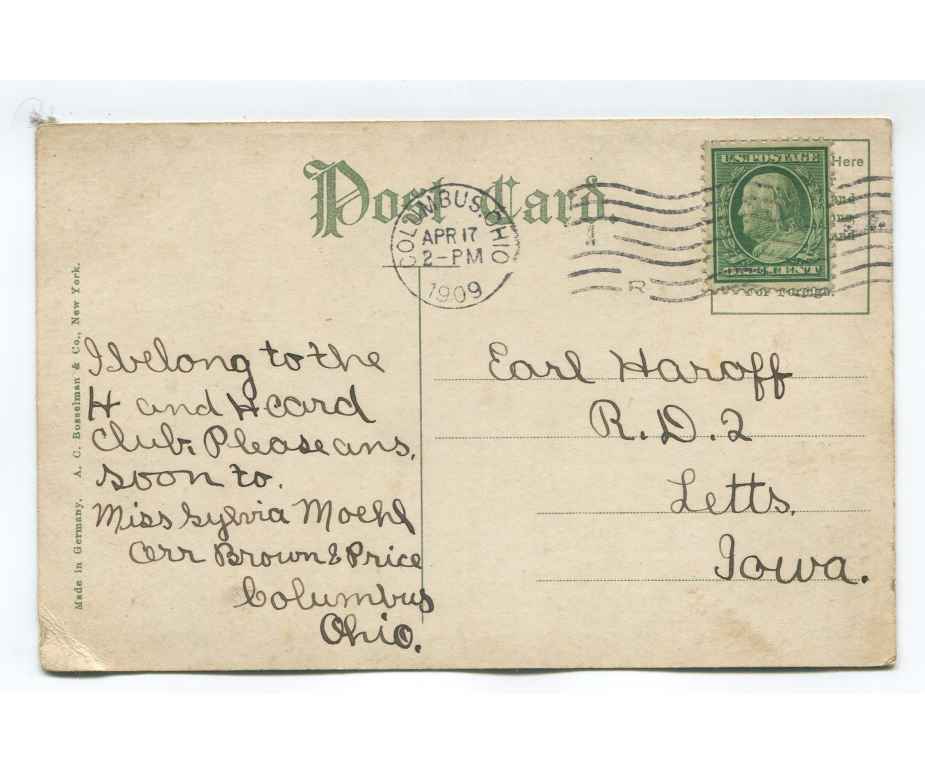 Post Card.
COLUMBUS, OHIO
APR 17
2-PM
1909
R
U.S. POSTAGE
Here
For Foreign.
Made in Germany. A. C. Bosselman & Co., New York.
I belong to the
H and H card
Club. Please ans.
soon to.
Miss Sylvia Moehl
Corr Brown & Price
Columbus
Ohio.
Earl Haroff
R.D.2
Letts,
Iowa.